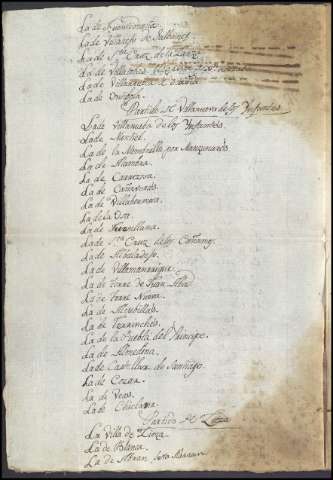 La de Fuentidueña
La de Villarejo de Salvanes
La de Sta. Cruz de la Zarza
La de Villa
La de Villa
La de
Partido de Villanueva de los Ynfantes
La de Villanueva de los Ynfantes
La de Montiel
La de la Membrilla por Manzanares
La de Alambra
La de
La de
La de Villahermosa
La de la Osa
La de Fuenllana
La de Sta. Cruz de los Cañamos
La de Albaladejo
La de Villamanrique
La de Torre de Juan Abad
La de Torre Nueva
La de Alcubillas
La de Terrinches
La de la Puebla del Principe
La de Almedina
La de Castellar de Santiago
La de Cozar
La de Veas
La de Chiclana
Partido de Zieza
La Villa de Zieza
La de Blanca
La de